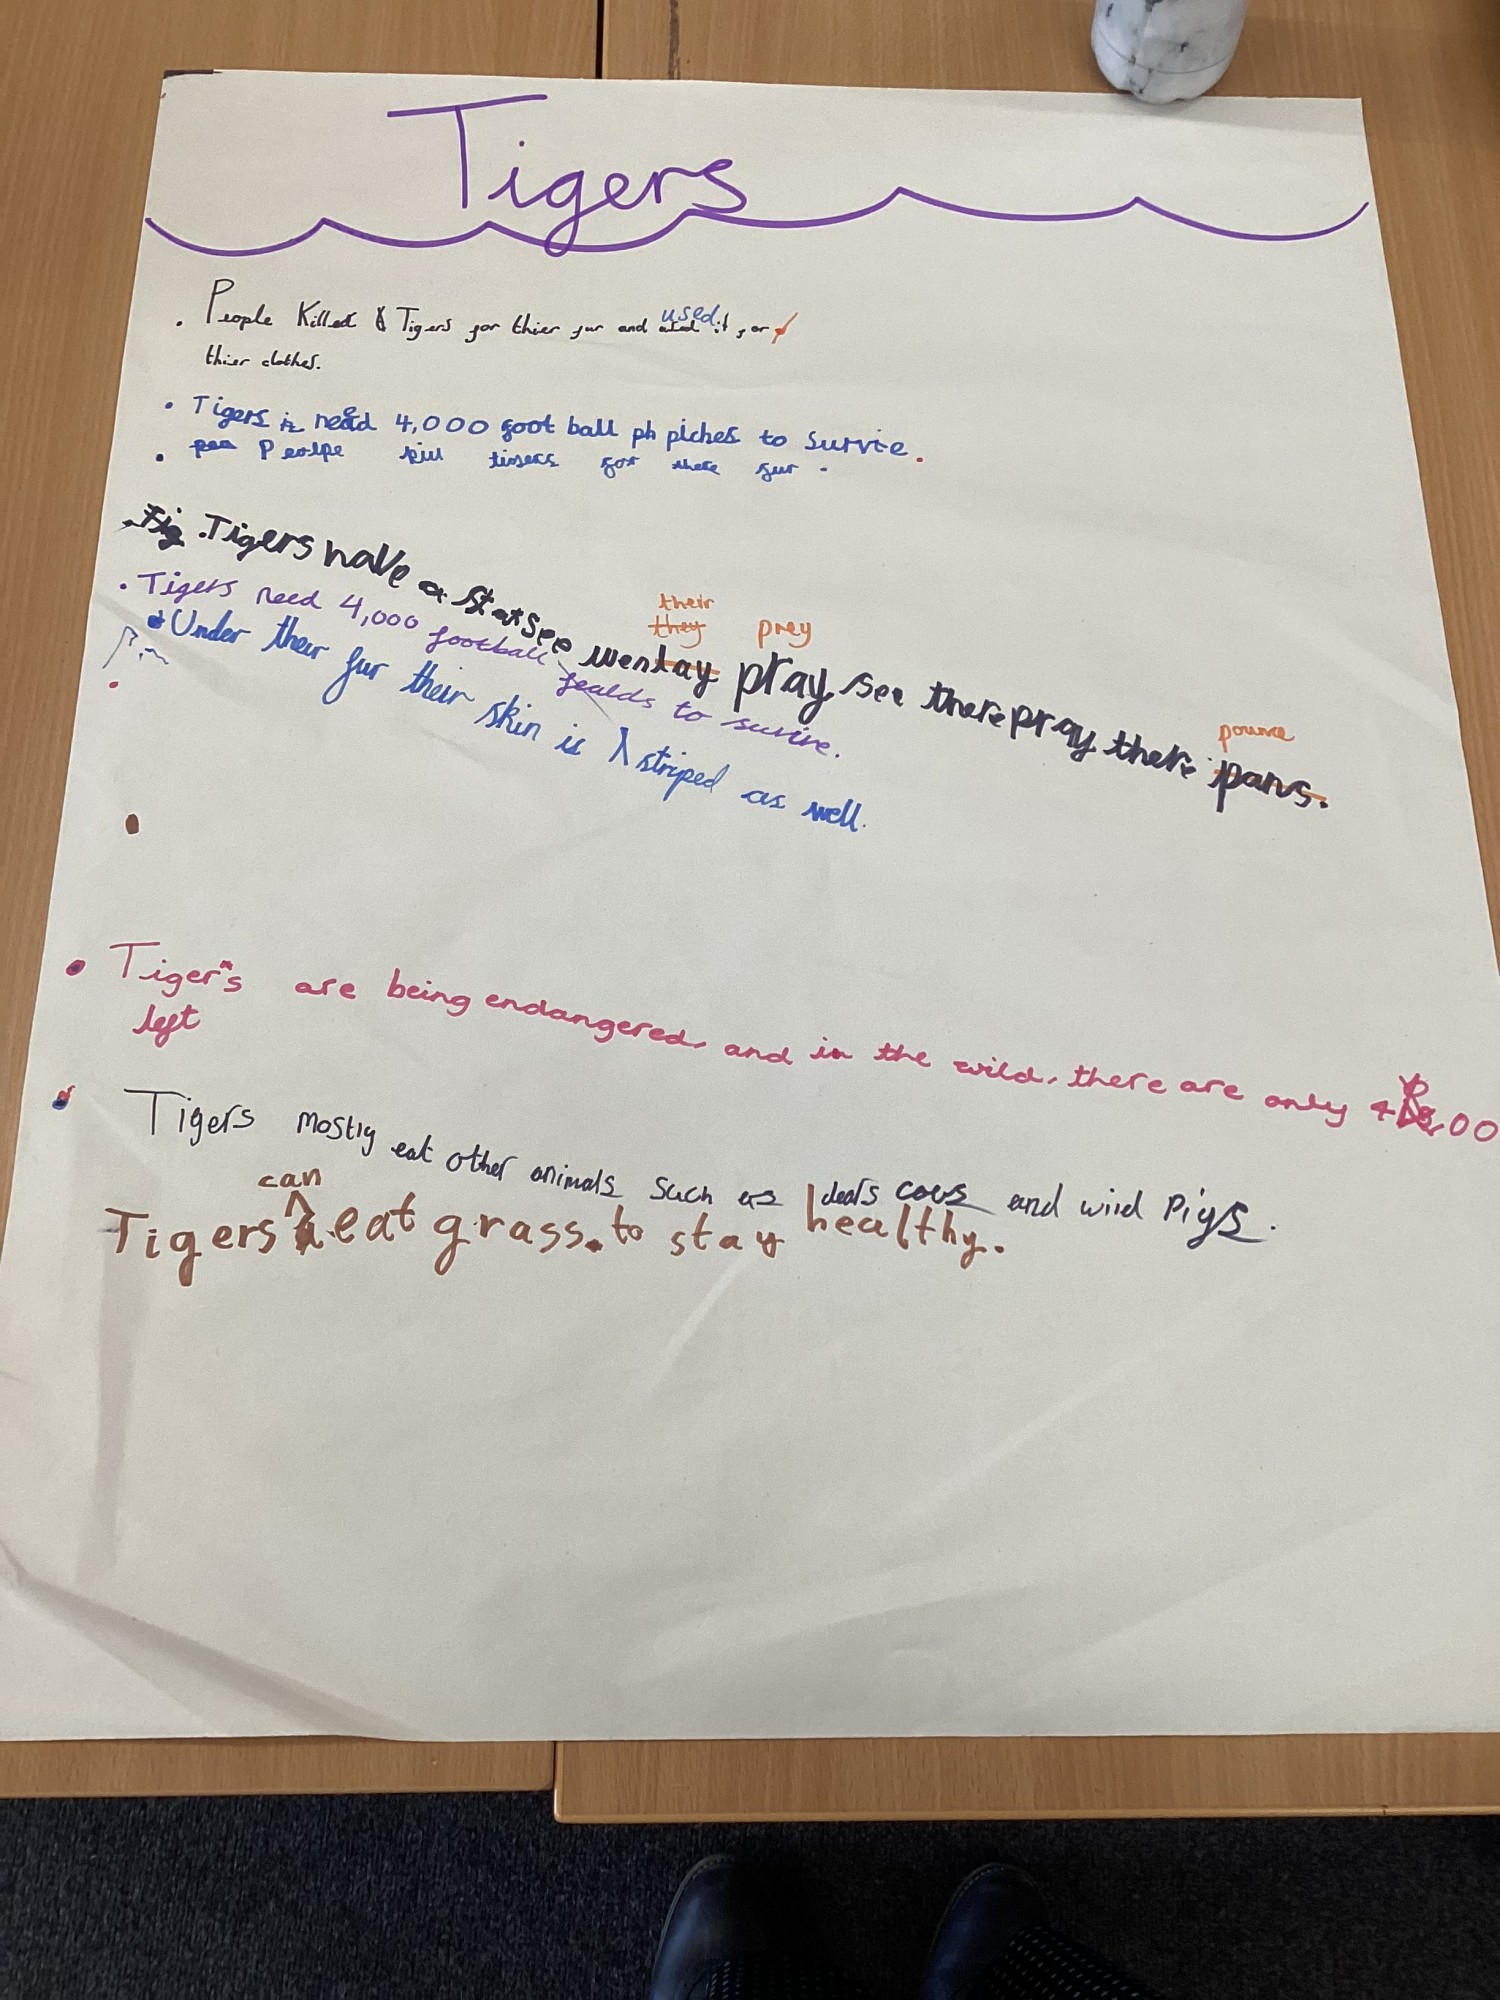 Tigers
• People Killed Tigers for thier fur and used it for
thier clothes.
• Tigers need 4,000 foot ball piches to survie.
• Peolpe kill tigers for there fur.
.Tigers have a statsee wen they their pray prey see there pray there paws. pounce
• Tigers need 4,000 football fealds to survive.
• Under their fur their skin is striped as well.
• Tiger's are being endangered, and in the wild, there are only
left
• Tigers mostly eat other animals such as dears cows and wild Pigs.
Tigers can eat grass. to stay healthy.